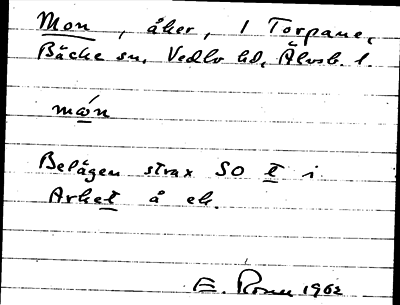 Mon, åker, 1 Torpane,
Bäcke sn, Vedbo hd, Älvsb. l.
mώn
Belägen strax SO t i
Arket å ek.
E. Rosell 1962